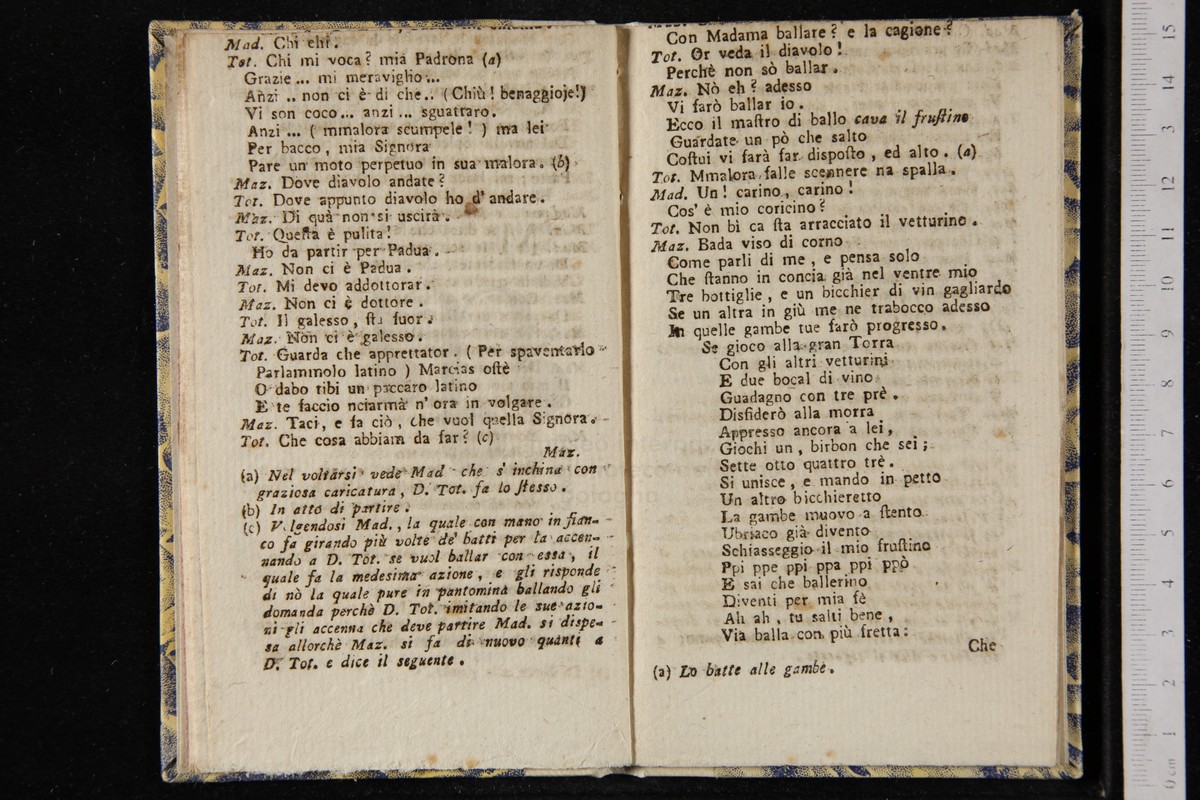 Mad. Chi chi.
Tot. Chi mi voca? mia Padrona (a)
Grazie... mi meraviglio...
Anzi .. non ci è di che.. (Chiù! benaggioje!)
Vi son coco... anzi... sguattaro.
Anzi... ( mmalora scumpele! ) ma lei
Per bacco, mia Signora
Pare un moto perpetuo in sua malora. (b)
Maz. Dove diavolo andate?
Tot. Dove appunto diavolo ho d'andare.
Maz. Di quà non si uscirà.
Tot. Queſta è pulita!
Ho da partir per Padua.
Maz. Non ci è Padua.
Tot. Mi devo addottorar.
Maz. Non ci è dottore.
Tot. Il galesso, ſta fuor.
Maz. Non ci è galesso.
Tot. Guarda che apprettator. ( Per spaventarlo
Parlammolo latino ) Marcias oſtè
O dabo tibi un paccaro latino
E te faccio nciarmà n' ora in volgare.
Maz. Taci, e fa ciò, che vuol quella Signora.
Tot. Che cosa abbiam da far? (c)
Maz.
(a) Nel voltarsi vede Mad che s'inchina con
graziosa caricatura, D. Tot. fa lo ſtesso.
(b) In atto di partire.
(c) Volgendosi Mad., la quale con mano in fian-
co fa girando più volte de' batti per la accen-
nando a D. Tot. se vuol ballar con essa, il
quale fa la medesima azione, e gli risponde
di nò la quale pure in pantomina ballando gli
domanda perchè D. Tot. imitando le sue azio-
ni gli accenna che deve partire Mad. si dispe-
sa allorchè Maz. si fa di nuovo quanti a
D. Tot. e dice il seguente.
Con Madama ballare? e la cagione?
Tot. Or veda il diavolo!
Perchè non sò ballar.
Maz. Nò eh? adesso
Vi farò ballar io.
Ecco il maſtro di ballo cava il fruſtino
Guardate un pò che salto
Coſtui vi farà far dispoſto, ed alto. (a)
Tot. Mmalora falle scennere na spalla.
Mad. Un! carino, carino!
Cos' è mio coricino?
Tot. Non bi ca ſta arracciato il vetturino.
Maz. Bada viso di corno
Come parli di me, e pensa solo
Che ſtanno in concia già nel ventre mio
Tre bottiglie, e un bicchier di vin gagliardo
Se un altra in giù me ne trabocco adesso
In quelle gambe tue farò progresso.
Se gioco alla gran Torra
Con gli altri vetturini
E due bocal di vino
Guadagno con tre prè.
Disfiderò alla morra
Appresso ancora a lei,
Giochi un, birbon che sei;
Sette otto quattro trè.
Si unisce, e mando in petto
Un altro bicchieretto
La gambe muovo a ſtento
Ubriaco già divento
Schiasseggio il mio fruſtino
Ppi ppe ppi ppa ppi ppò
E sai che ballerino
Diventi per mia fè
Ah ah, tu salti bene,
Via balla con più fretta:
Che
(a) Lo batte alle gambe.